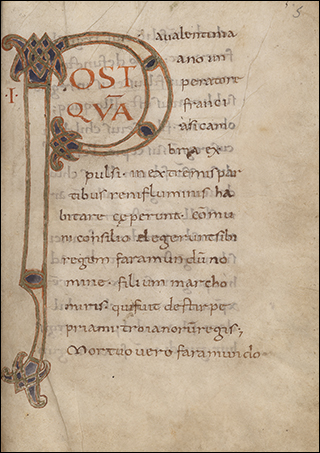 5
·I·
POST
QVĀ
a ualentinia
ano im
peratore
franci
a sicam
bria ex
pulsi. in extremis par
tibus reni fluminis ha
bitare ceperunt. cōmu
ni consilio elegerunt sibi
regem faramundū no
mine. filium marcho
miris. qui fuit de stirpe
priami troianorū regis;
Mortuo uero faramundo.